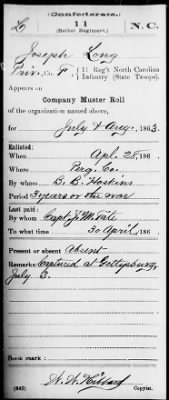 Confederate.
L 11 N.C.
(Bethel Regiment).
Joseph Long
Priv, Co. F, 11 Reg't North Carolina
Infantry (State Troops).
Appears on
Company Muster Roll
of the organization named above,
for July & Aug, 1863.
Enlisted:
When Apl. 25, 186 .
Where Perq. Co.
By whom B. B. Hoskins
Period 3 years or the war
Last paid:
By whom Capt. J. M. Tate
To what time 30 April, 186 .
Present or absent Absent
Remarks: Captured at Gettysburg,
July 3.
Book mark:
(642) Copyist.